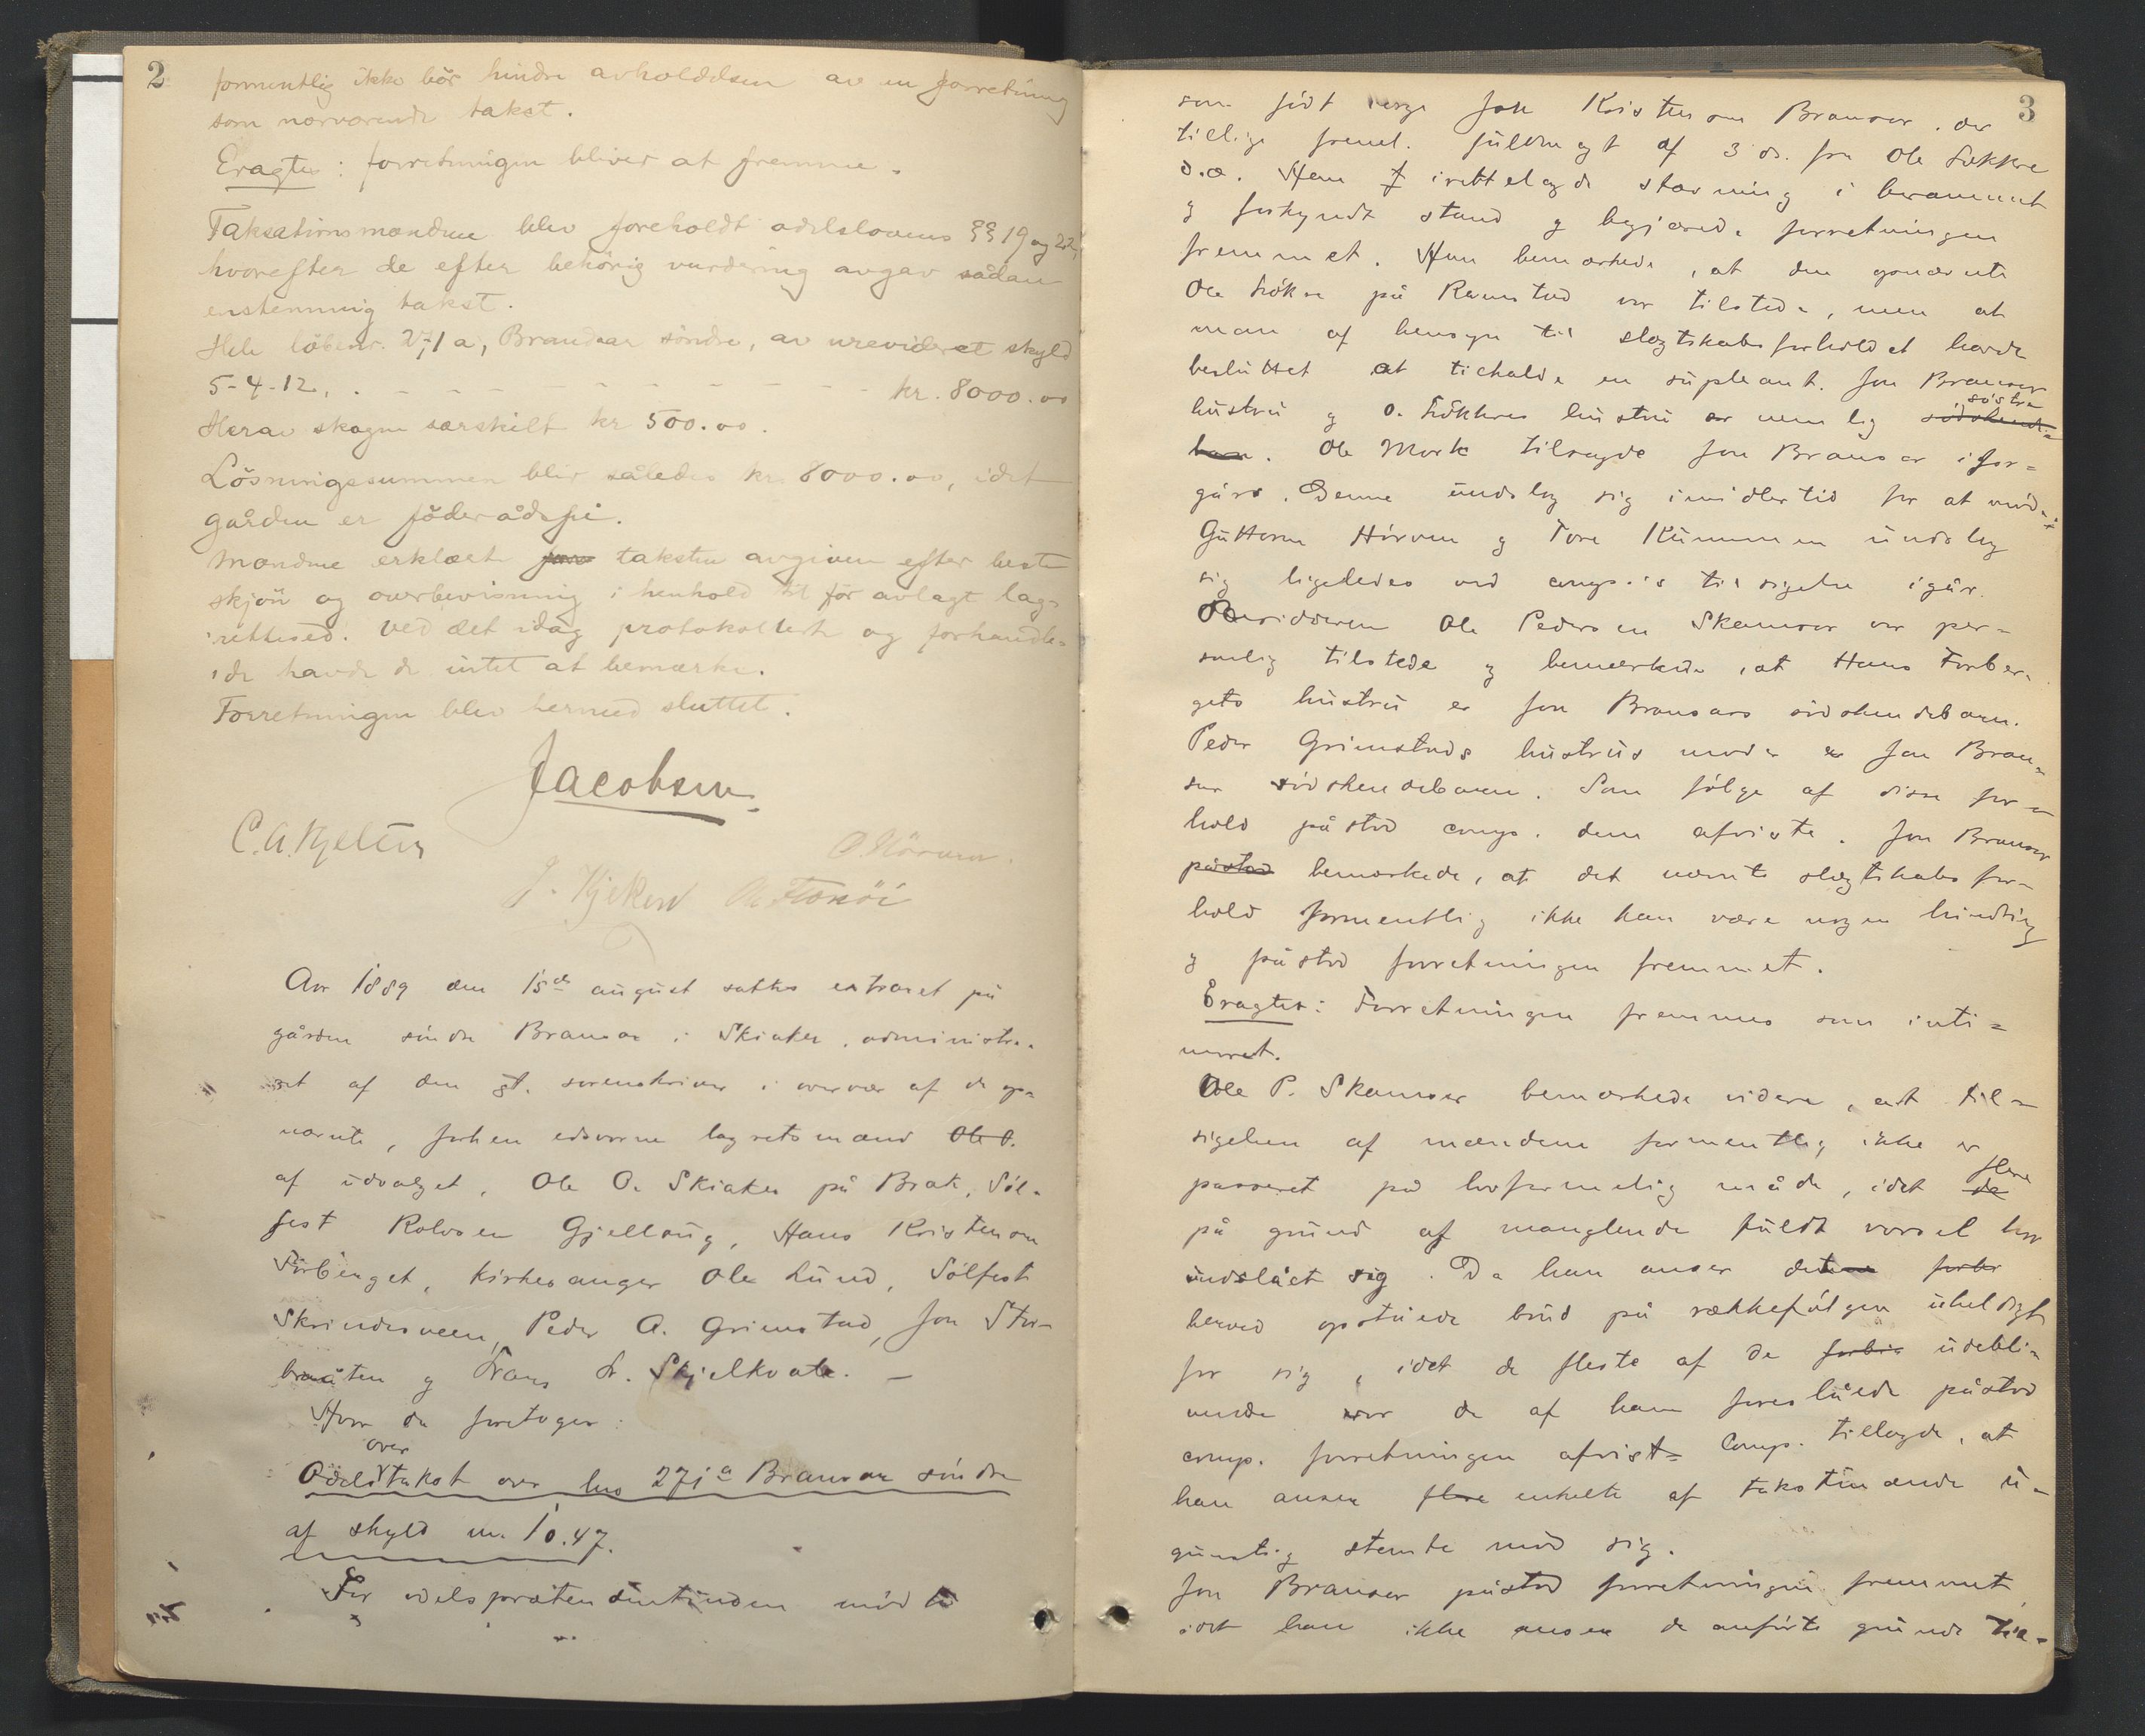 2
formentlig ikke bör hindre avholdelsen av en forretning
som nærværende takst.
Eragtes: forretningen bliver at fremme.
Taksationsmændene blev foreholdt odelslovens §§ 19 og 22,
hvorefter de efter behörig vurdering avgav sådan
enstemmig takst.
Hele löbenr. 27, 1 a, Brandsar söndre, av urevideret skyld
5-4-12, . - - - - - - - - - kr. 8000.00
Herav skogen særskilt kr 500.00.
Lösningssummen blir således kr. 8000.00, idet
gården er föderådsfri.
Mændene erklærte taksten avgiven efter beste
skjön og overbevisning i henhold til för avlagt lag-
rettesed. Ved det idag protokollerte og forhandle-
de havde de intet at bemærke.
Forretningen blev hermed sluttet.
Jacobsen
C. A. Kjeltzu
O. Hörven.
J. Kjekend
Aar 1889 den 15de august sattes extraret på
gården söndre Bransar i Skiaker, administre-
ret af den st. sorenskriver i overvær af de op-
nævnte, forhen edsvorne lagrettemænd Ole O.
af udvalget, Ole O. Skiaker på Brek, Söl-
fest Rolvsen Gjellaug, Hans Kristensen
Forberget, kirkesanger Ole Lund, Sölfest
Skrindesveen, Peder A. Grimstad, Jon Stor-
bråten g Frans S. Skjelkvale. -
Hvor da foretoges:
over
Odelstakst over lno 271a Bransar söndre
af skyld m. 10.47.
For odelsprætendentinden mödte
3
som född verge Jon Kristensen Bransar, der
tillige freml. fuldmagt af 3 ds. fra Ole Lökkre
d.æ. Han irettelagde stævning i berammet
g forkyndt stand g begjærede forretningen
fremmet. Han bemærkede, at den opnævnte
Ole Lökre på Ramstad var tilstede, men at
man af hensyn til slægtskabsforholdet havde
besluttet at tilkalde en supleant. Jon Bransar
söstre
hustru g O. Lökkres hustru er nemlig södskende-
barn. Ole Mork tilsagde Jon Bransar ifor-
gårs. Denne undslog sig imidlertid for at möde.
Guttorm Hörven g Tore Kummen undslog
sig ligeledes ved comp.'s tilsigelse igår.
Besidderen Ole Pedersen Skamsar var per-
sonlig tilstede g bemærkede, at Hans Forber-
gets hustru er Jon Bransars södskendebarn.
Peder Grimstads hustrus moder er Jon Bran-
sar södskendebarn. Som fölge af disse for-
hold påstod comp. dem afviste. Jon Bransar
påstod bemærkede, at det nævnte slægtskabsfor-
hold formentlig ikke kan være nogen hindring
g påstod forretningen fremmet.
Eragtes: Forretningen fremmes som inti-
meret.
Ole P. Skamsar bemærkede videre, at til-
sigelsen af mændene formentlig ikke er
flere
passeret på lovformelig måde, idet de
på grund af manglende fuldt varsel har
undslået sig. Da han anser det forbr
herved opståede brud på rækkefölgen uheldigt
for sig, idet de fleste af de forbi udebli-
vende var de af ham foreslåede påstod
comp. forretningen afvist. Comp. tillagde, at
han anser flere enkelte af takstmændene u-
gunstig stemte mod sig.
Jon Bransar påstod forretningen fremmet,
idet han ikke anser de anförte grunde til-